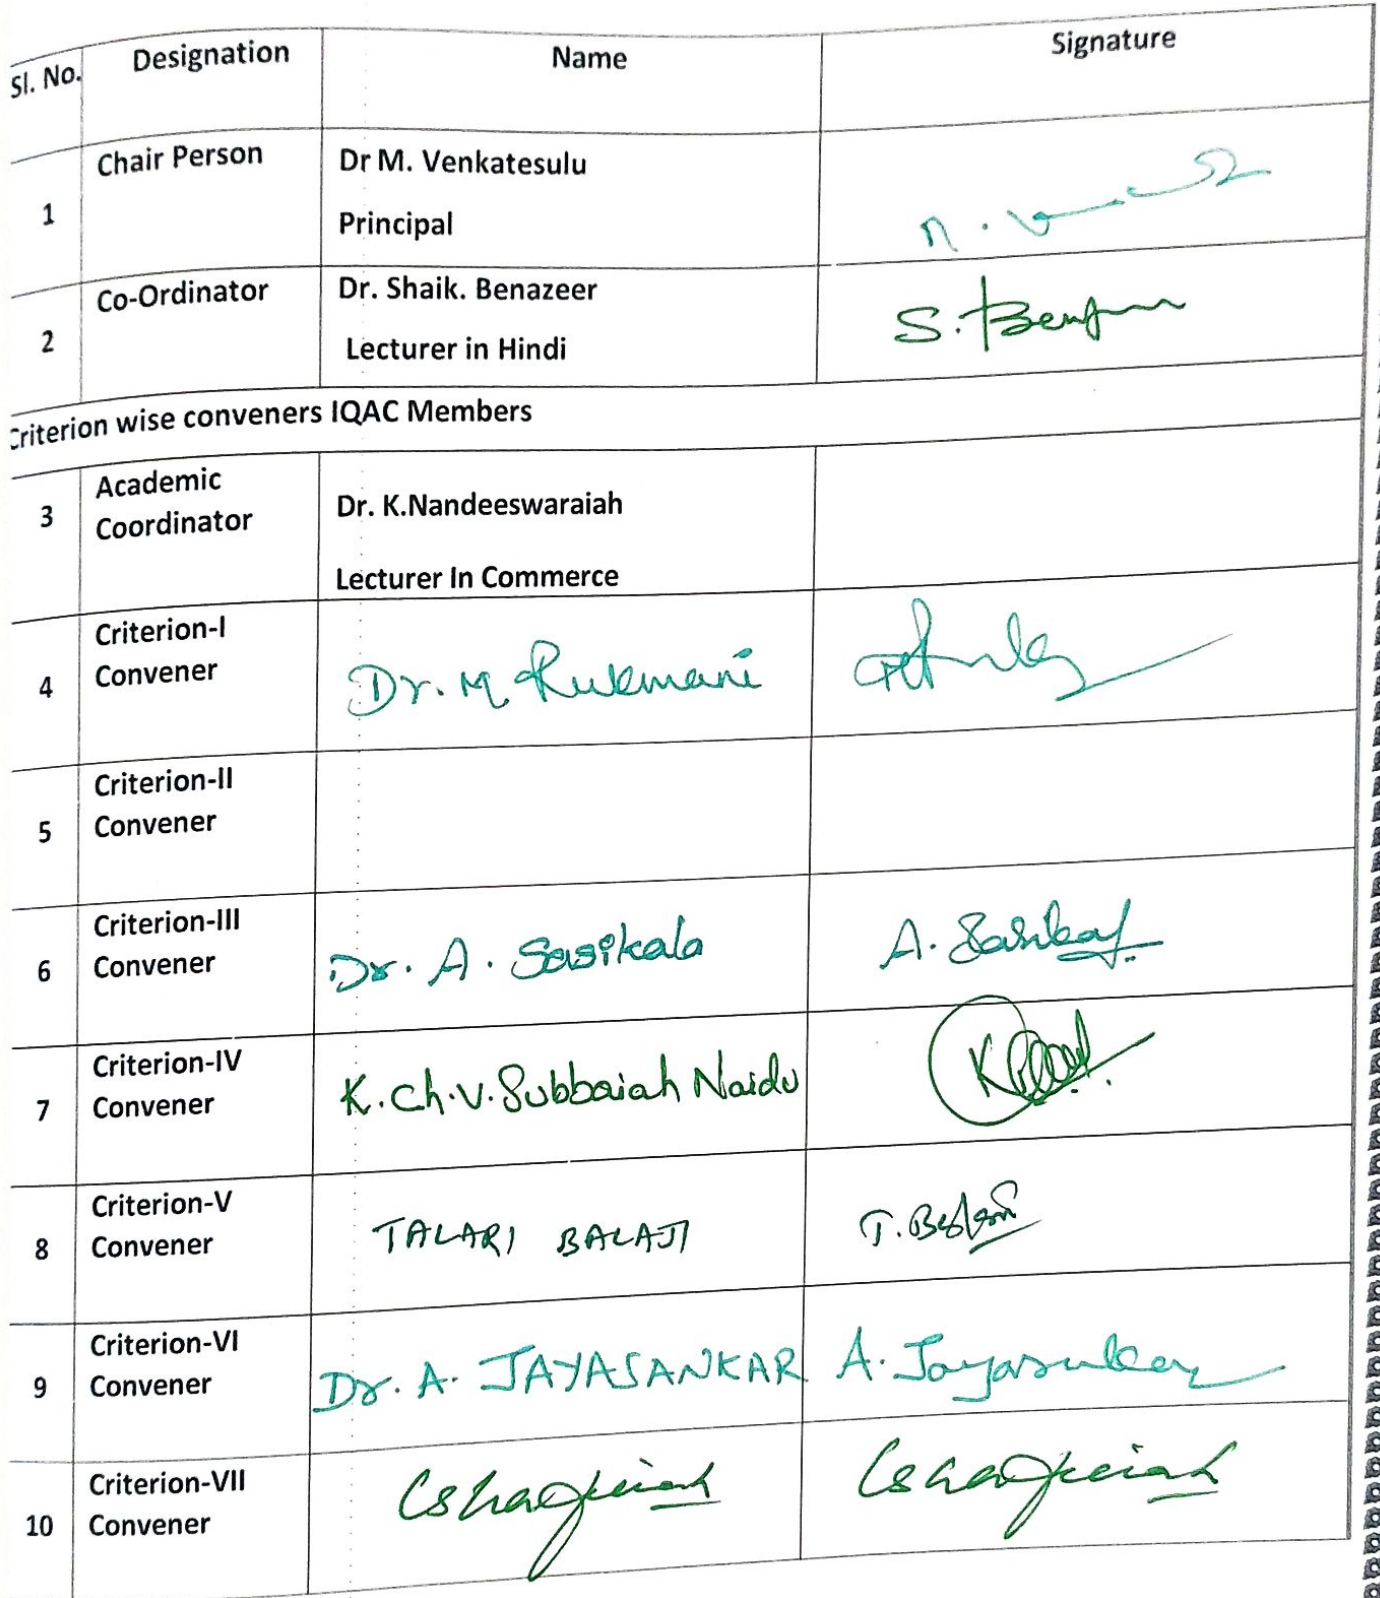 Sl. No. Designation Name Signature
1 Chair Person Dr M. Venkatesulu
Principal
2 Co-Ordinator Dr. Shaik. Benazeer S.
Lecturer in Hindi
Criterion wise conveners IQAC Members
3 Academic Coordinator Dr. K.Nandeeswaraiah
Lecturer In Commerce
4 Criterion-I
Convener Dr. M. Rukmani
5 Criterion-II
Convener
6 Criterion-III
Convener Dr. A. Sasikala A.
7 Criterion-IV
Convener K.Ch.V. Subbaiah Naidu
8 Criterion-V
Convener TALARI BALAJI T.
9 Criterion-VI
Convener Dr. A. JAYASANKAR A. Jayasankar
10 Criterion-VII
Convener